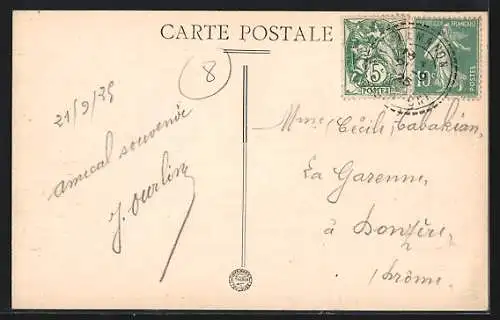 CARTE POSTALE
8
5c
POSTES
POSTES
10
21/9/25
amical souvenir
J. Ourlin
Mme Cécile Cabakian,
La Garenne,
à Donzère,
Drôme.